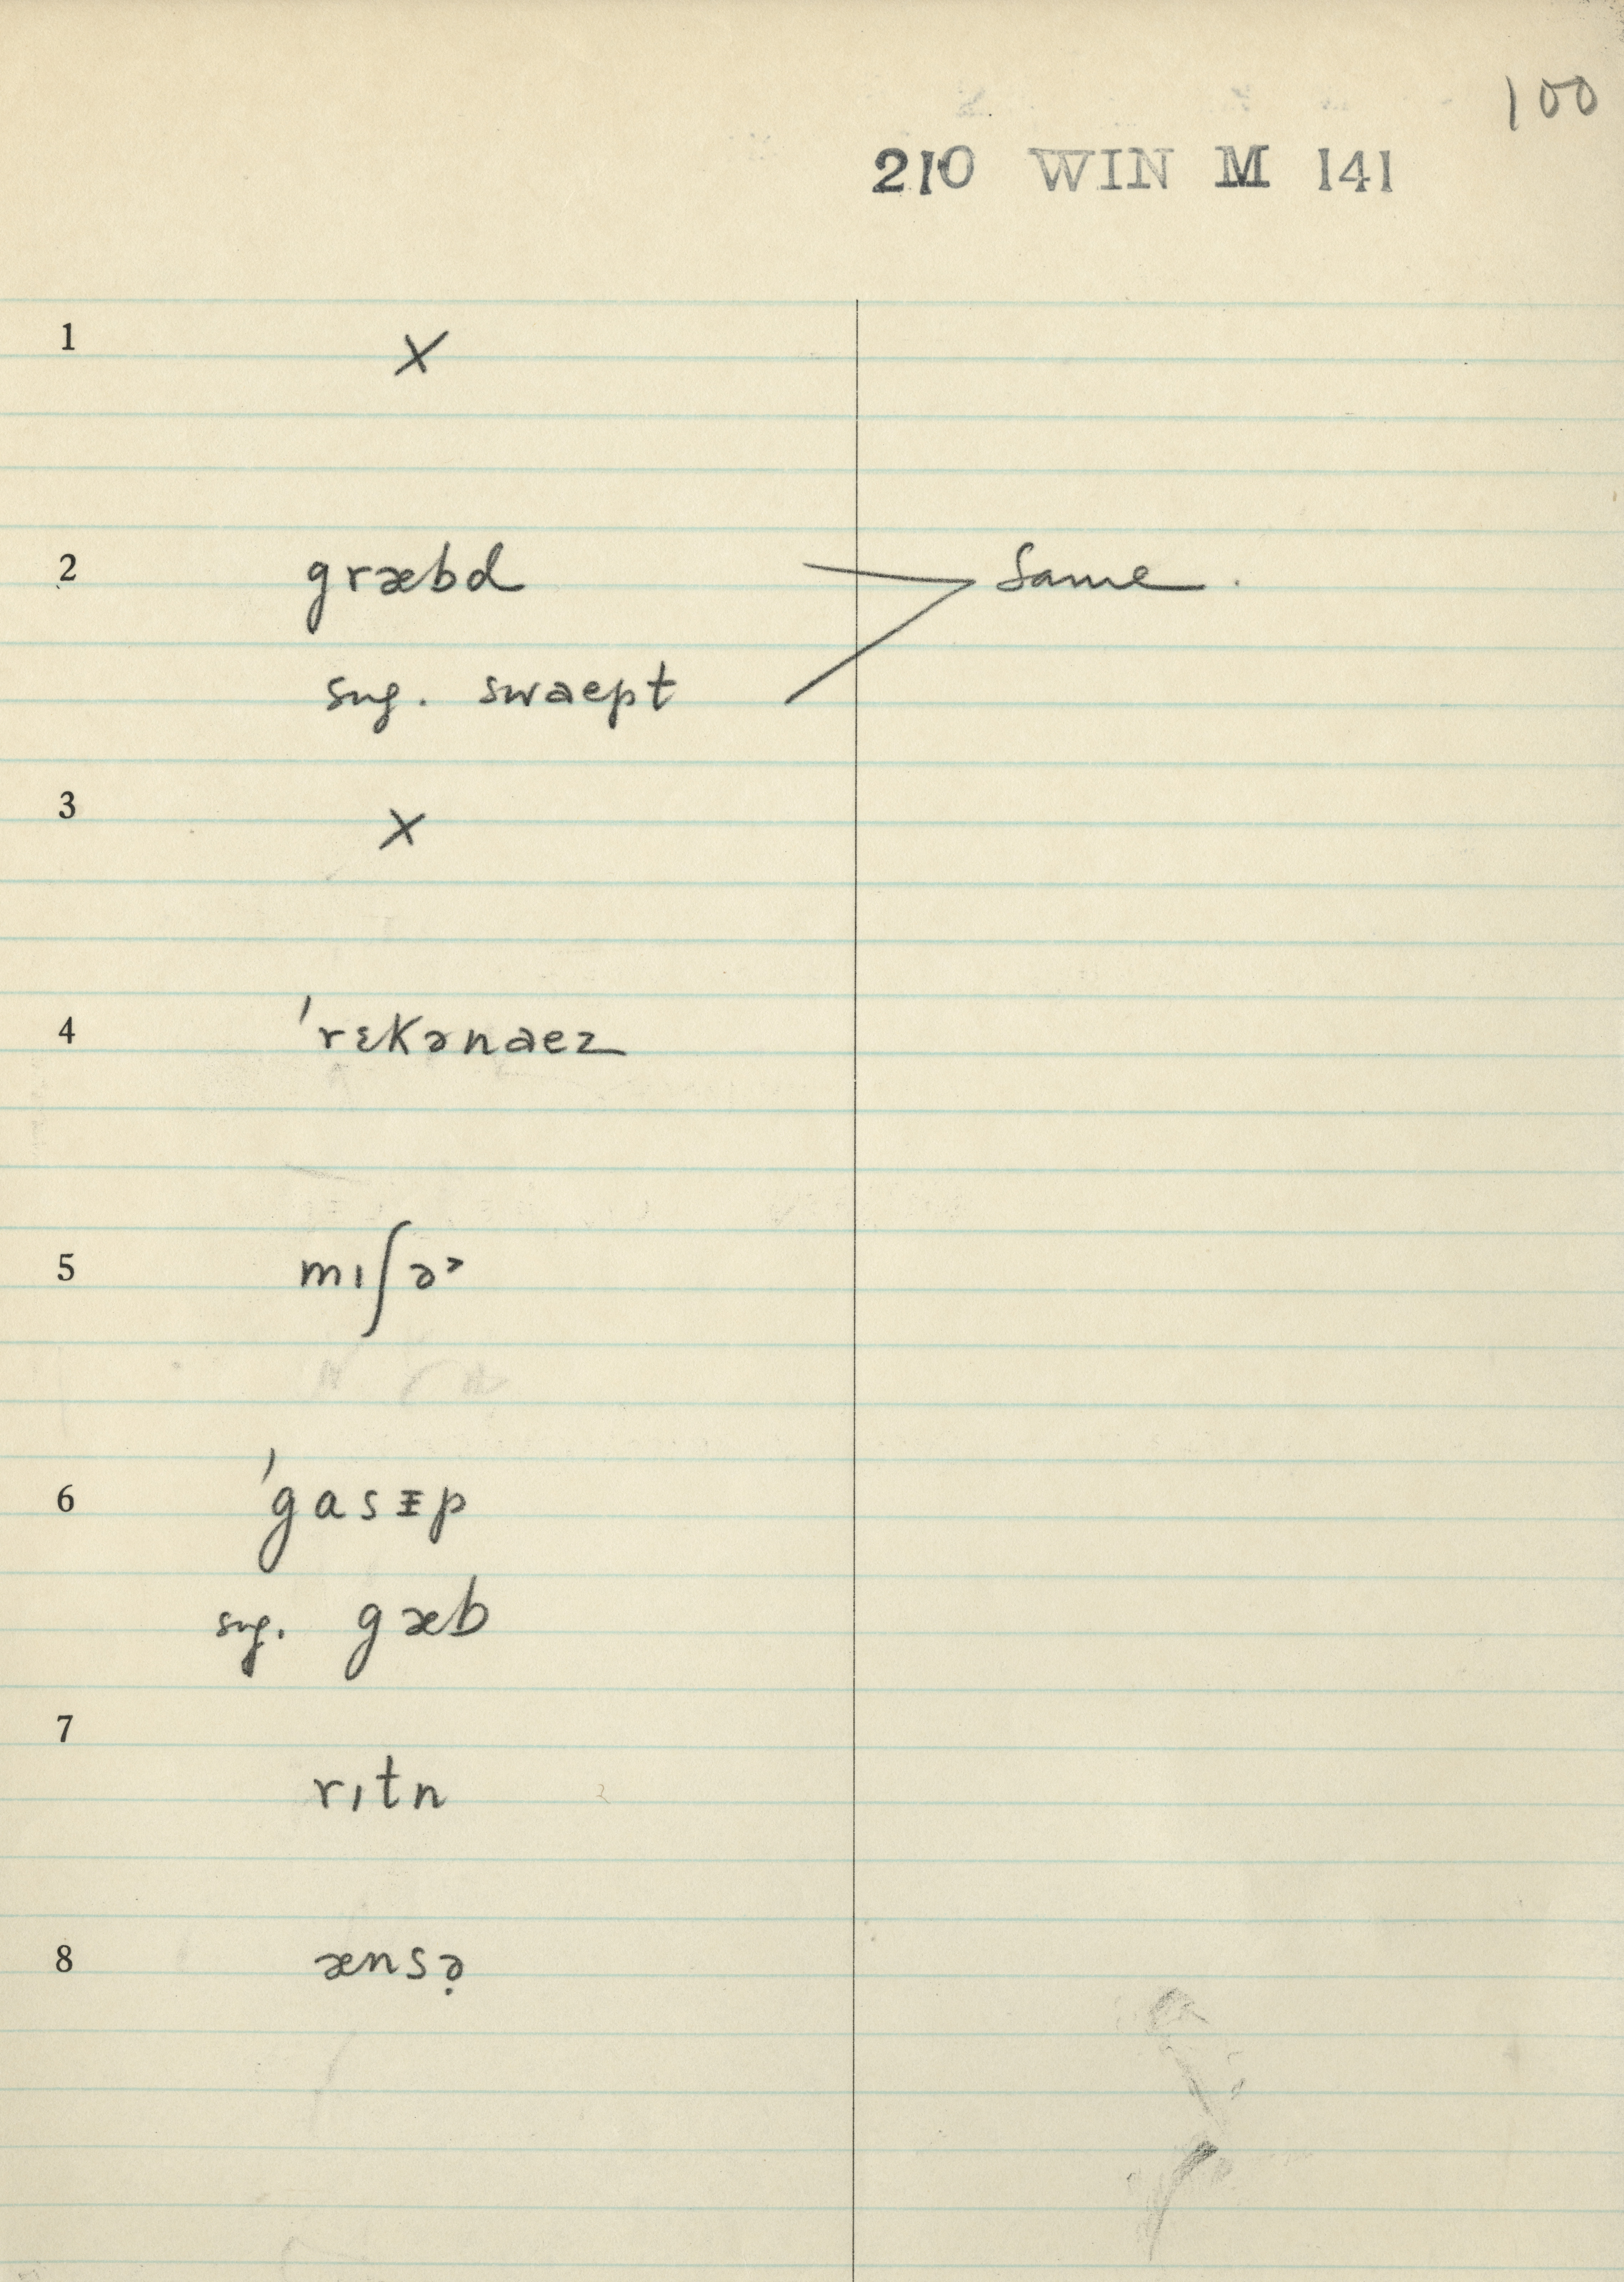 100
210 WIN M 141
1 X
2 græbd Same.
sug. swaept
3 X
4 ˈrɛkənaez
5 mɪʃə˞
6 ˈgasᵻp
sug. gæb
7 rɪtn
8 ænsə̣